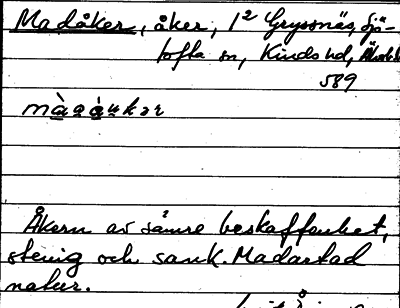 Madåker, åker, 1² Gryssnäs, Sjö-
tofta sn, Kinds hd, Älvsb l
589
màaàukər
Åkern av sämre beskaffenhet,
stenig och sank. Madartad
natur.